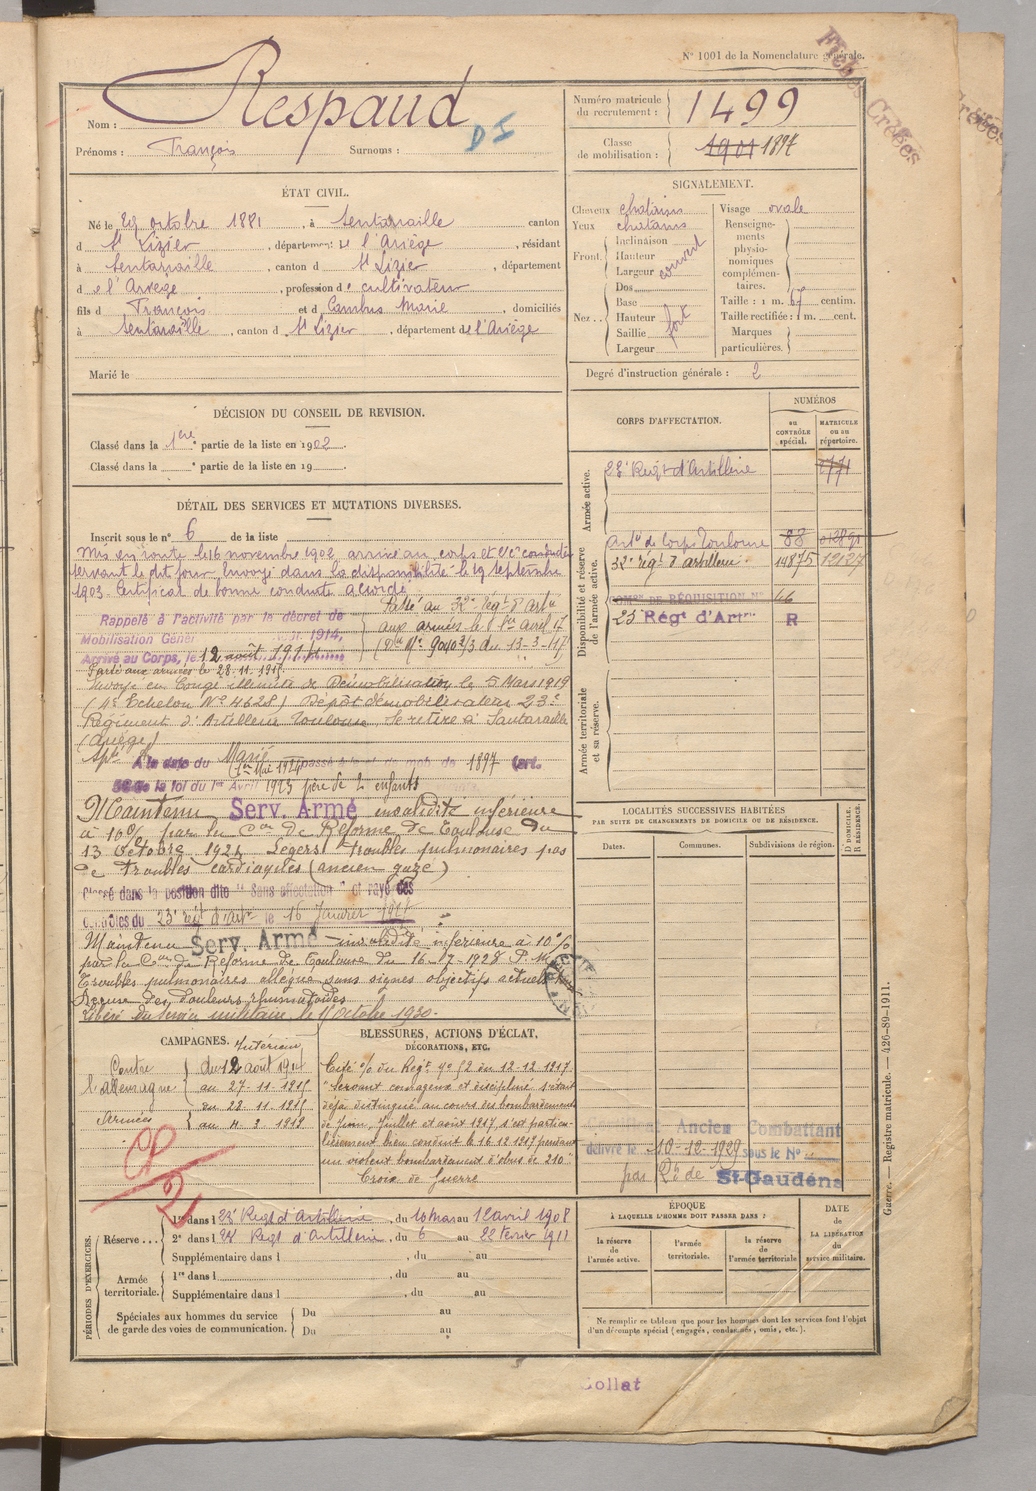 Fiches Créées
N° 1001 de la Nomenclature générale.
Nom : Respaud
DI
Prénoms : François Surnoms :
Numéro matricule du recrutement : 1499
Classe de mobilisation : 1901 1897
ÉTAT CIVIL.
Né le octobre 1881, à Sentaraille canton
d St Lizier, département de l'Ariège, résidant
à Sentaraille, canton d St Lizier, département
d e l'Ariège, profession de cultivateur
fils d François et d Cambus Marie domiciliés
à Sentaraille, canton d St Lizier, département de l'Ariège
Marié le
SIGNALEMENT.
Cheveux chatains
Yeux chatains
Front. Inclinaison
Hauteur
Largeur couvert
Nez.. Dos
Base
Hauteur fort
Saillie
Largeur
Visage ovale
Renseignements physionomiques complémentaires.
Taille : 1 m. 67 centim.
Taille rectifiée : 1 m. cent.
Marques particulières.
Degré d'instruction générale : 2
DÉCISION DU CONSEIL DE REVISION.
Classé dans la 1ère partie de la liste en 1902.
Classé dans la e partie de la liste en 19
CORPS D'AFFECTATION.
NUMÉROS
au CONTRÔLE spécial.
MATRICULE ou au répertoire.
Armée active.
23e Regt d'Artillerie 1771
Disponibilité et réserve de l'armée active.
Artie de Corps Toulouse 88
32e régt d'artillerie. 14875 12127
DE RÉQUISITION N° 46
23 Régt d'Artie R
Armée territoriale et sa réserve.
DÉTAIL DES SERVICES ET MUTATIONS DIVERSES.
Inscrit sous le n° 6 de la liste
Mis en route le 16 novembre 1902, arrivé au corps et 2e conducteur
servant le dit jour. Envoyé dans la disponibilité le 19 septembre
1903. Certificat de bonne conduite accordé.
Rappelé à l'activité par le décret de
Mobilisation Génér 1914,
Arrivé au Corps, le 12 août 1914
Passé au 32e Régt d'Artie
aux armées le 1er avril 17
(D M. 9040 2/3 du 13-3-17)
Parti aux armées le 28.11.1915
Envoyé en Congé illimité de Démobilisation le 5 Mars 1919
(4e Echelon N° 4628) Dépôt démobilisateur 23e
Régiment d'Artillerie Toulouse. Se retire à Santaraille
(Ariège)
Marié
A la date du 1er Mai 1924 passé 1897 (art.
58 de la loi du 1er Avril 1923 père de 2 enfants
Maintenu Serv. Armé invalidité inférieure
à 10% par la Con de Réforme de Toulouse du
13 Octobre 1921 Légers troubles pulmonaires pas
de troubles cardiaques (ancien gazé)
Classé dans la position dite "Sans affectation" et rayé des
contrôles du 23e régt d'artie le 16 Janvier
Maintenu Serv. Armé invalidité inférieure à 10%
par la Con de Réforme de Toulouse du 16-07-1928 P.M.
Troubles pulmonaires allégué sans signes objectifs actuels
Accuse des douleurs rhumatoïdes
Libéré du service militaire le 1 Octobre 1930.
LOCALITÉS SUCCESSIVES HABITÉES
PAR SUITE DE CHANGEMENTS DE DOMICILE OU DE RÉSIDENCE.
Dates. Communes. Subdivisions de région. D DOMICILE. R RÉSIDENCE.
CAMPAGNES.
Intérieur
Contre du 12 août 1914
l'Allemagne au 27.11.1915
du 28.11.1915
Armées au 4 3 1919
BLESSURES, ACTIONS D'ÉCLAT,
DÉCORATIONS, ETC.
Cité O/ du Régt n° 52 du 12.12.1917.
"Servant courageux et discipliné s'était
déjà distingué au cours des bombardements
de Juin, Juillet et août 1917, s'est particu-
lièrement bien conduit le 16.12.1917 pendant
un violent bombardement d'obus de 210"
Croix de Guerre
Ancien Combattant
délivré le 10-12-1929 sous le N°
par de St-Gaudens
PÉRIODES D'EXERCICES.
Réserve... 1re dans l 23e Regt d'Artillerie, du 10 mars au 12 avril 1908
2e dans l 23 Regt d'Artillerie, du 6 au 22 février 1911
Supplémentaire dans l , du au
Armée territoriale. 1re dans l , du au
Supplémentaire dans l , du au
Spéciales aux hommes du service de garde des voies de communication. Du au
Du au
ÉPOQUE
À LAQUELLE L'HOMME DOIT PASSER DANS :
la réserve de l'armée active.
l'armée territoriale.
la réserve de l'armée territoriale
DATE de LA LIBÉRATION du service militaire.
Ne remplir ce tableau que pour les hommes dont les services font l'objet
d'un décompte spécial (engagés, condamnés, omis, etc.).
Guerre. — Registre matricule. — 426-89-1911.
Collat